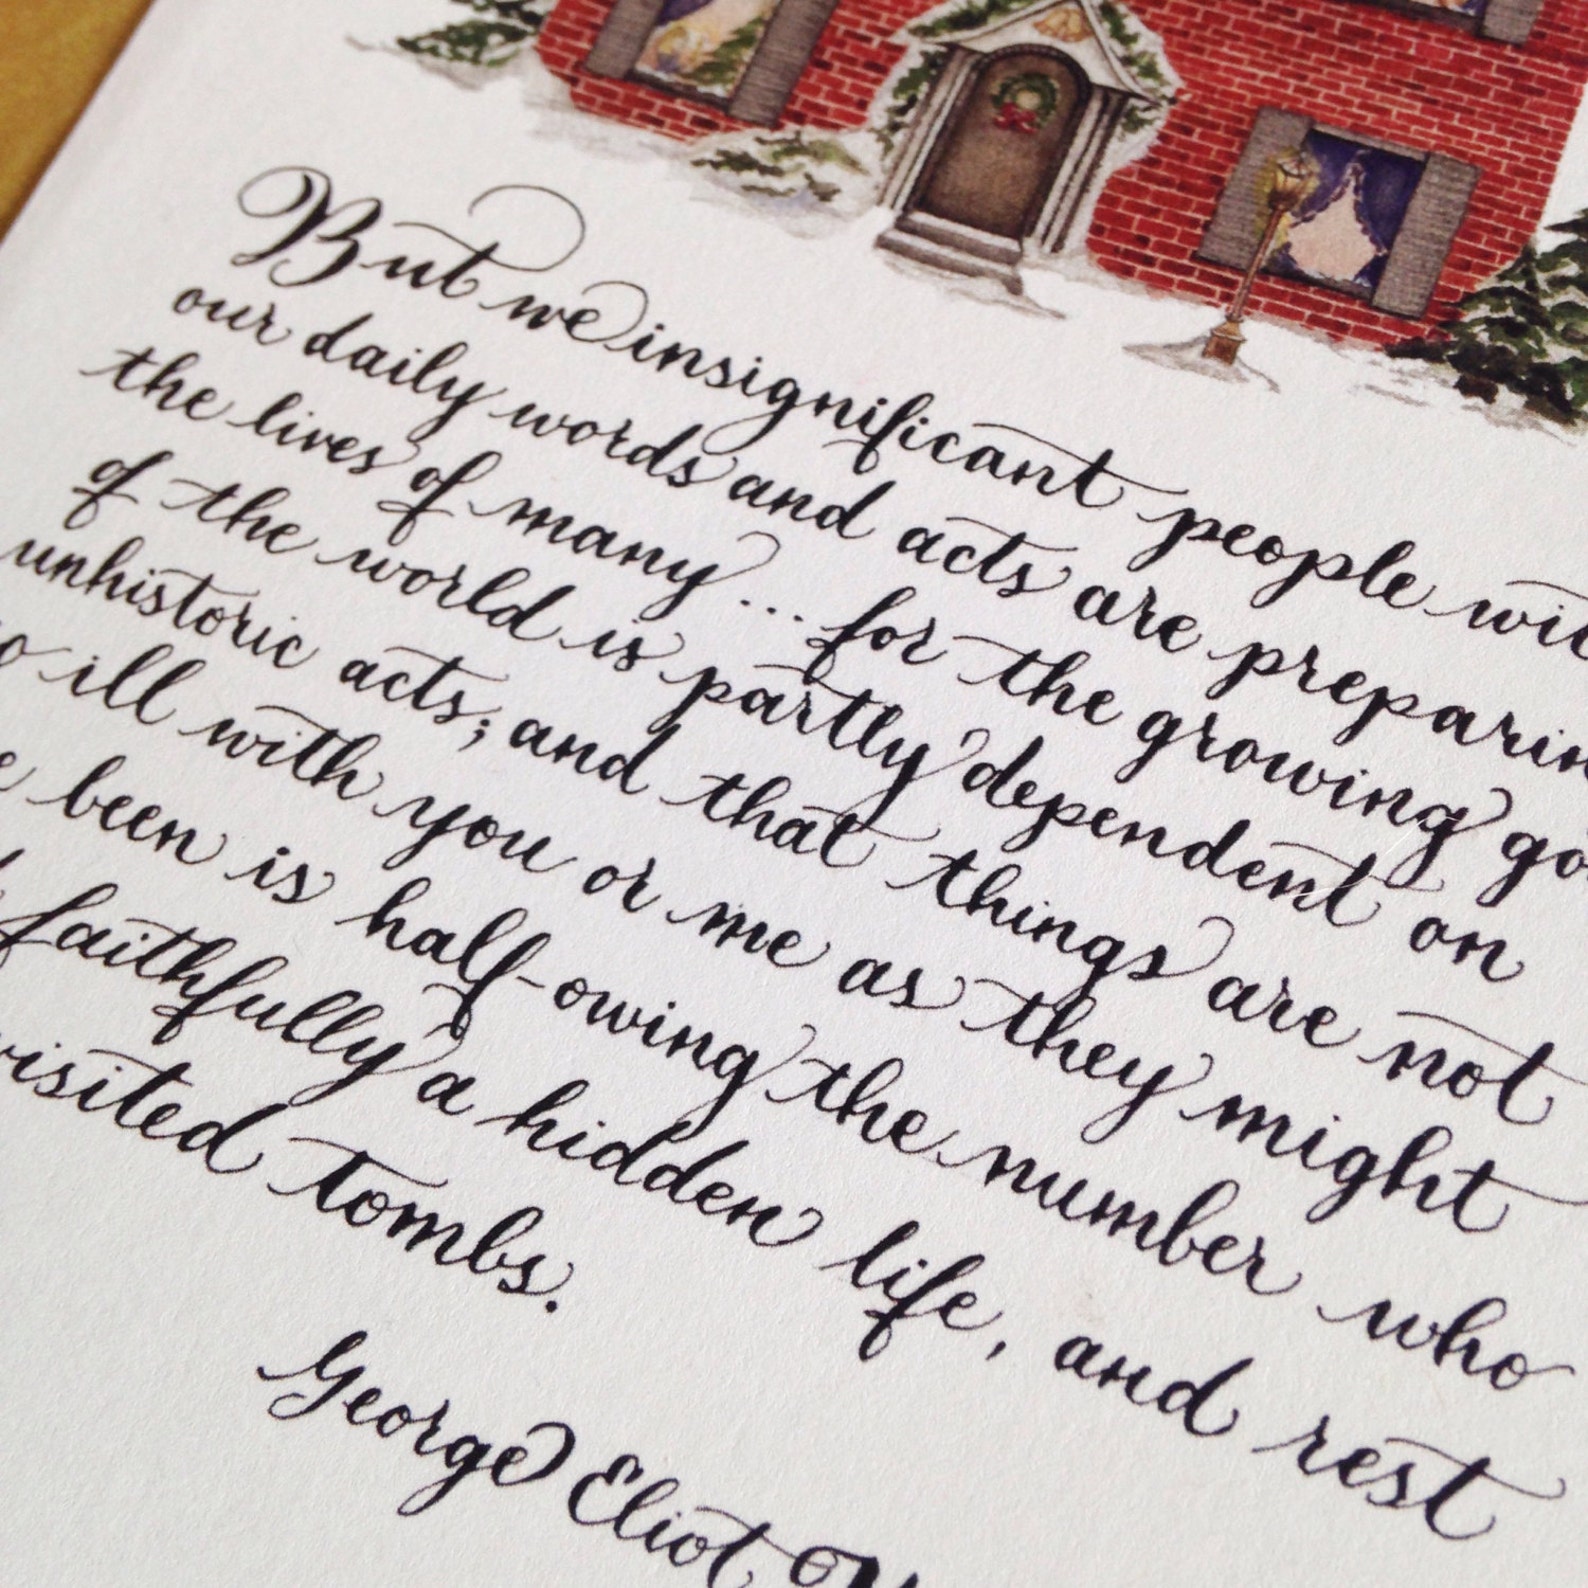 But we insignificant people wit
our daily words and acts are preparin
the lives of many ... for the growing go
of the world is partly dependent on
unhistoric acts; and that things are not
o ill with you or me as they might
e been is half-owing the number who
faithfully a hidden life, and rest
visited tombs.
George Eliot